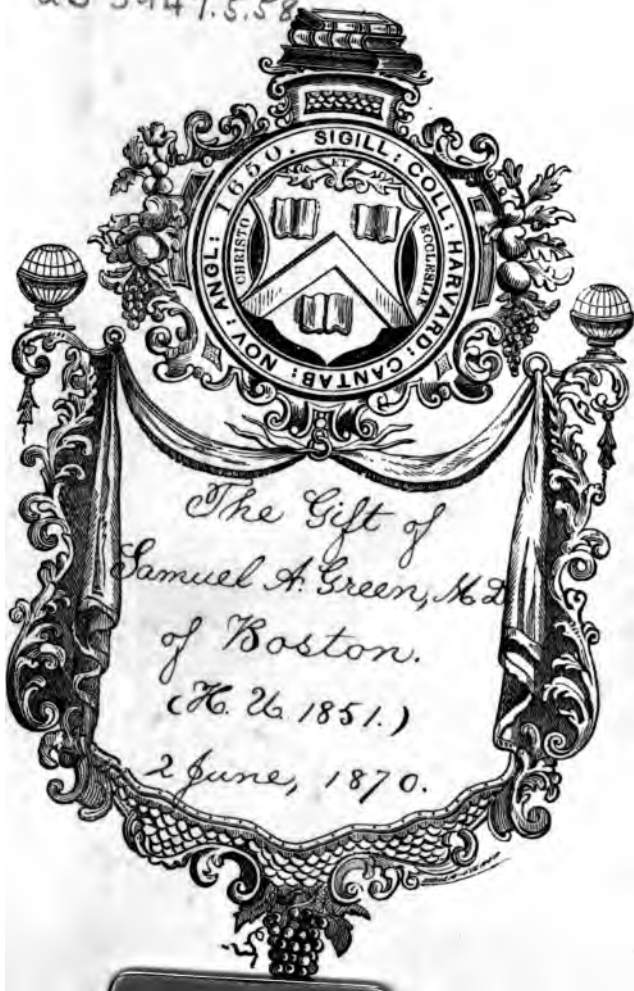 5.58
SIGILL: COLL: HARVARD: CANTAB: NOV: ANGL: 1650.
ET
CHRISTO
ECCLESIAE
The Gift of
Samuel A. Green, M.D.
of Boston.
(H. U. 1851.)
2 June, 1870.